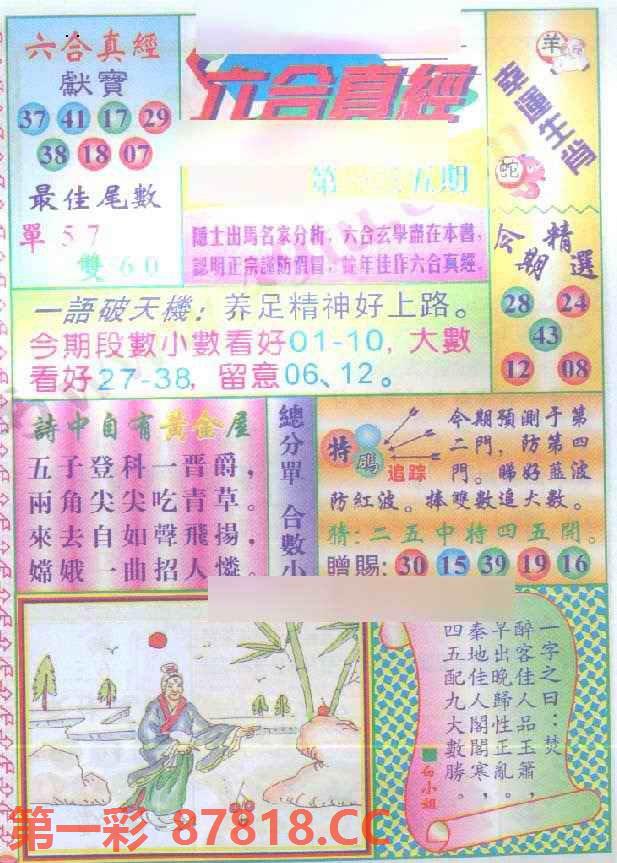 六合真經
獻寶
37 41 17 29
38 18 07
最佳尾數
單57
雙60
六合真經
五期
隱士出馬名家分析，六合玄學盡在本書，
認明正宗謹防假冒，蛇年佳作六合真經。
羊
幸運生肖
蛇
今期精選
28 24
43
12 08
一語破天機：养足精神好上路。
今期段數小數看好01-10，大數
看好27-38，留意06、12。
詩中自有黃金屋
五子登科一晋爵，
兩角尖尖吃青草。
來去自如聲飛揚，
嫦娥一曲招人憐。
總分單 合數小
特碼
追踪
今期預測于第
二門，防第四
門。睇好蓝波
防紅波。捧雙數追大數。
猜：二五中特四五開。
贈賜：30 15 39 19 16
一字之曰：焚
醉客佳人品玉簫，
早出晚歸性正亂。
秦地佳人閣閣寒，
四五配九大數勝。
白小姐
第一彩 87818.CC